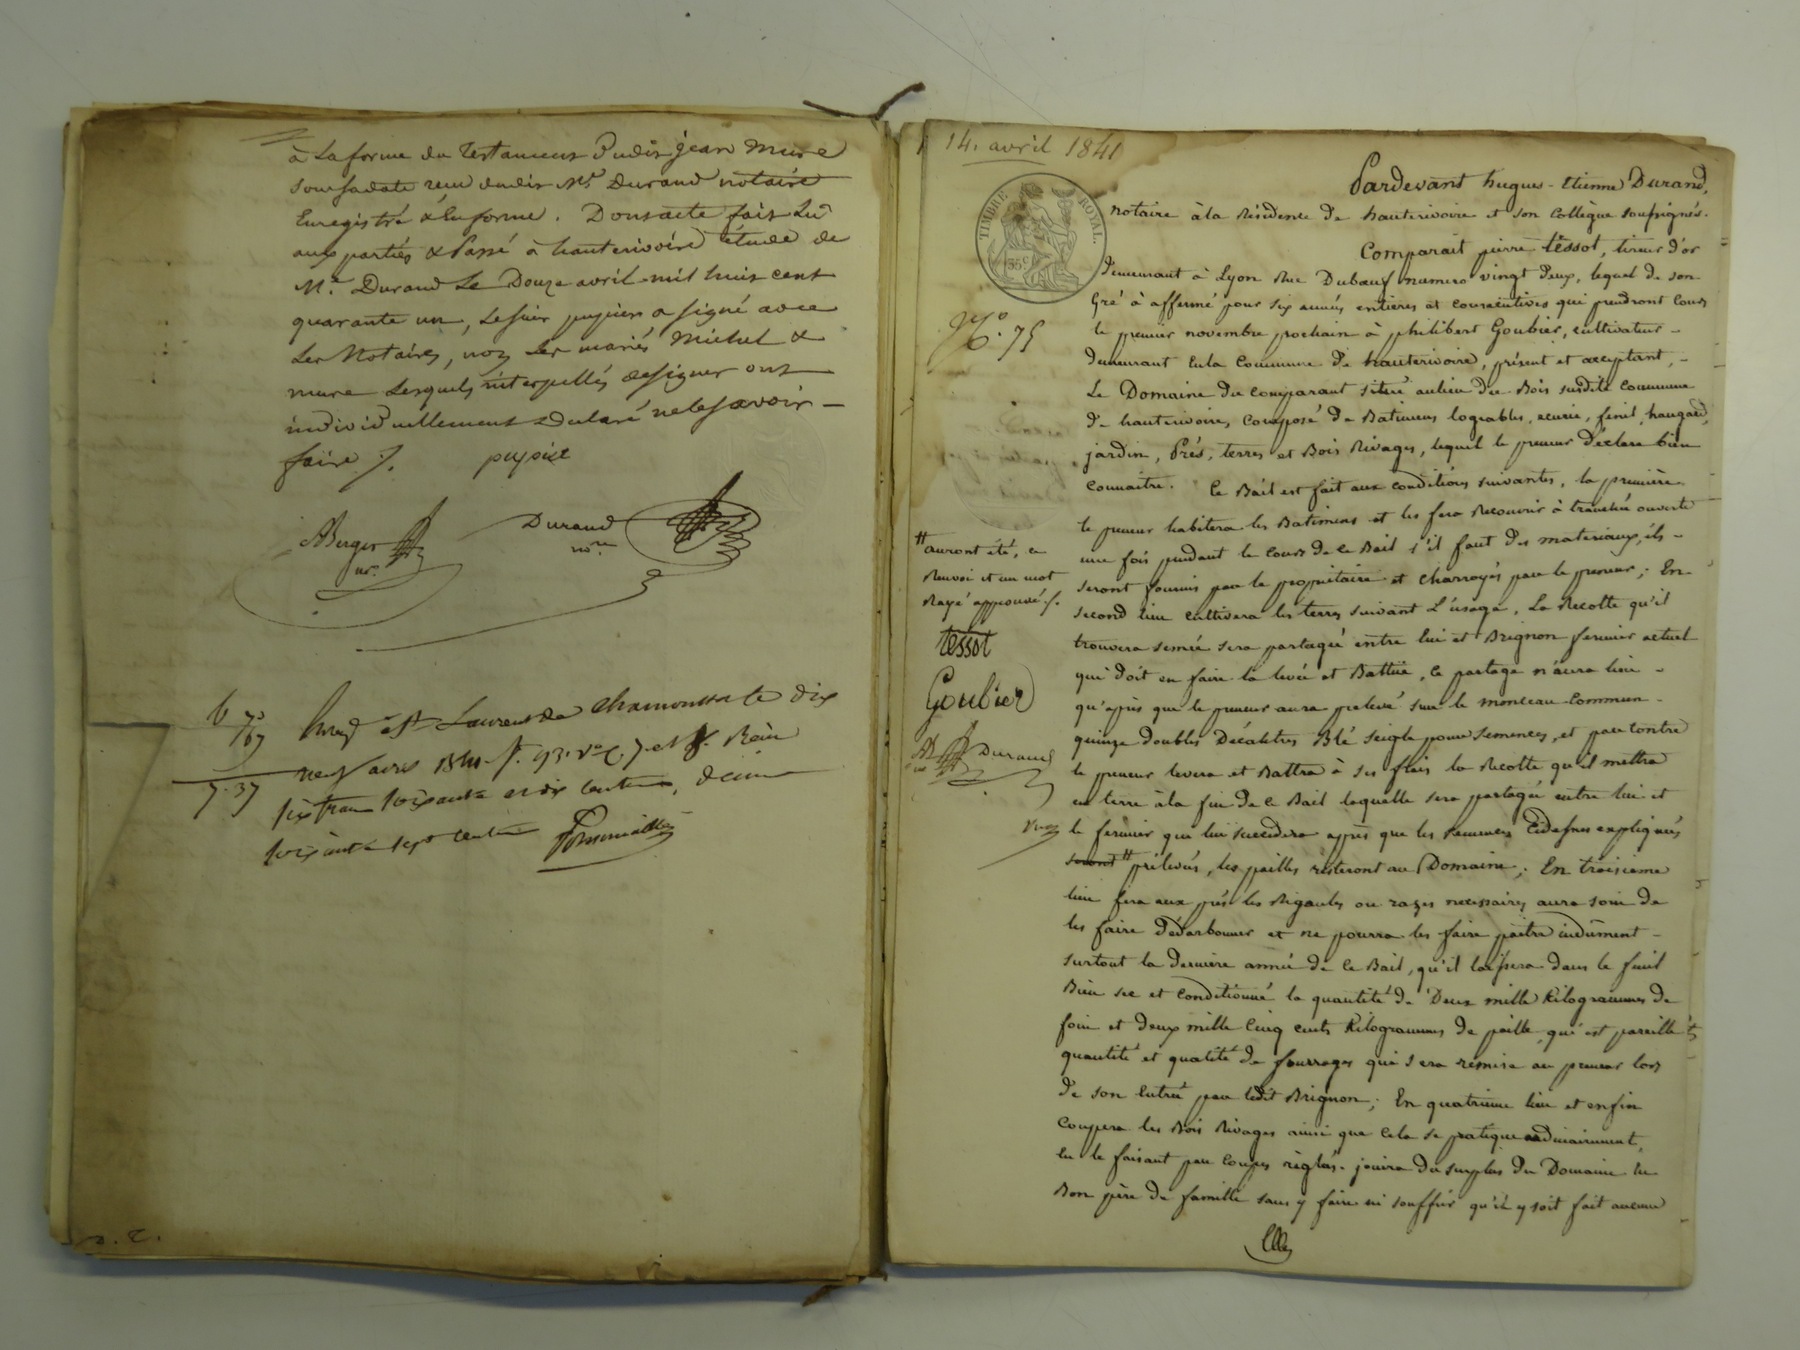 à la forme du testament dudit jean mure
sous sa date reçu dudit Me Durand notaire
Enregistré & En forme. Dont acte fait Lu
aux parties & Passé à hauterivoire étude de
Me. Durand Le Douze avril mil huit cent
quarante un, Le sieur pupier a signé avec
Les Notaires, non Les mariés Michel &
mure Lesquels interpellés de signer ont
individuellement Déclaré ne le savoir
faire /.
pupier
ABerger
nre.
Durand
nore
6 70
67
7.37
Enregé à St Laurent de Chamousset le dix
neuf avril 1841 f. 93. Vo C. 7 et 8. Reçu
six francs soixante et dix centimes, décime
soixante sept centimes
14. avril 1841
TIMBRE ROYAL.
35 c
No. 75
Pardevant hugues-Etienne Durand,
notaire à la Résidence De hauterivoire et son Collègue soussignés.
Comparait pierre têssot, tireur d'or
Demeurant à Lyon Rue Dubœuf numero vingt Deux, lequel de son
Gré à affermé pour six années entières et consécutives qui prendront Cours
le premier novembre prochain à philibert Goubier, cultivateur
Demeurant En la Commune De hauterivoire, présent et acceptant,
Le Domaine du comparant situé au lieu du Bois susdite commune
De hauterivoire, Composé De Batimens logeables, ecurie, fenil, hangard,
jardin, Prés, terres et Bois Rivages, lequel le preneur Déclare bien
Connaitre. Ce Bail est fait aux conditions suivantes, la première
le preneur habitera les Batimens et les fera Recouvrir à tranchée ouverte
une fois pendant le Cours de ce Bail s'il faut Des materiaux, ils
seront fournis par le propriétaire et Charroyés par le preneur; En
second lieu Cultivera les terres suivant L'usage, La Recolte qu'il
trouvera semée sera partagée entre lui et Brignon fermier actuel
qui doit en faire la levée et Battue, Ce partage n'aura lieu
qu'après que le preneur aura prelevé sur le monceau Commun
quinze doubles Décalitres Blé seigle pour semences, et par contre
le preneur levera et Battra à ses frais la Recolte qu'il mettra
en terre à la fin de ce Bail laquelle sera partagée entre lui et
le fermier qui lui succédera après que les semences Cidessus expliquées
seront # prélevées, les pailles resteront au Domaine; En troisieme
lieu fera aux prés les Rigaules ou razes necessaires aura soin de
les faire Dédarbonner et ne pourra les faire paitre indûment
surtout la Dernière année de ce Bail, qu'il laissera dans le fenil
Bien sec et Conditionné la quantité De Deux mille Kilogrammes De
foin et deux mille Cinq cents Kilogrammes de paille, qui est pareille
quantité et qualité De fourrages qui sera remise au preneur lors
De son Entrée par ledit Brignon; En quatrieme lieu et enfin
Coupera les Bois Rivages ainsi que cela se pratique ordinairement,
En le faisant par Coupes règlées. jouira du surplus du Domaine En
Bon père De famille sans y faire ni souffrir qu'il y soit fait aucune
# auront été, ce
Renvoi et un mot
Rayé approuvé /.
têssot
Goubier
AB
nre
Durand
nore